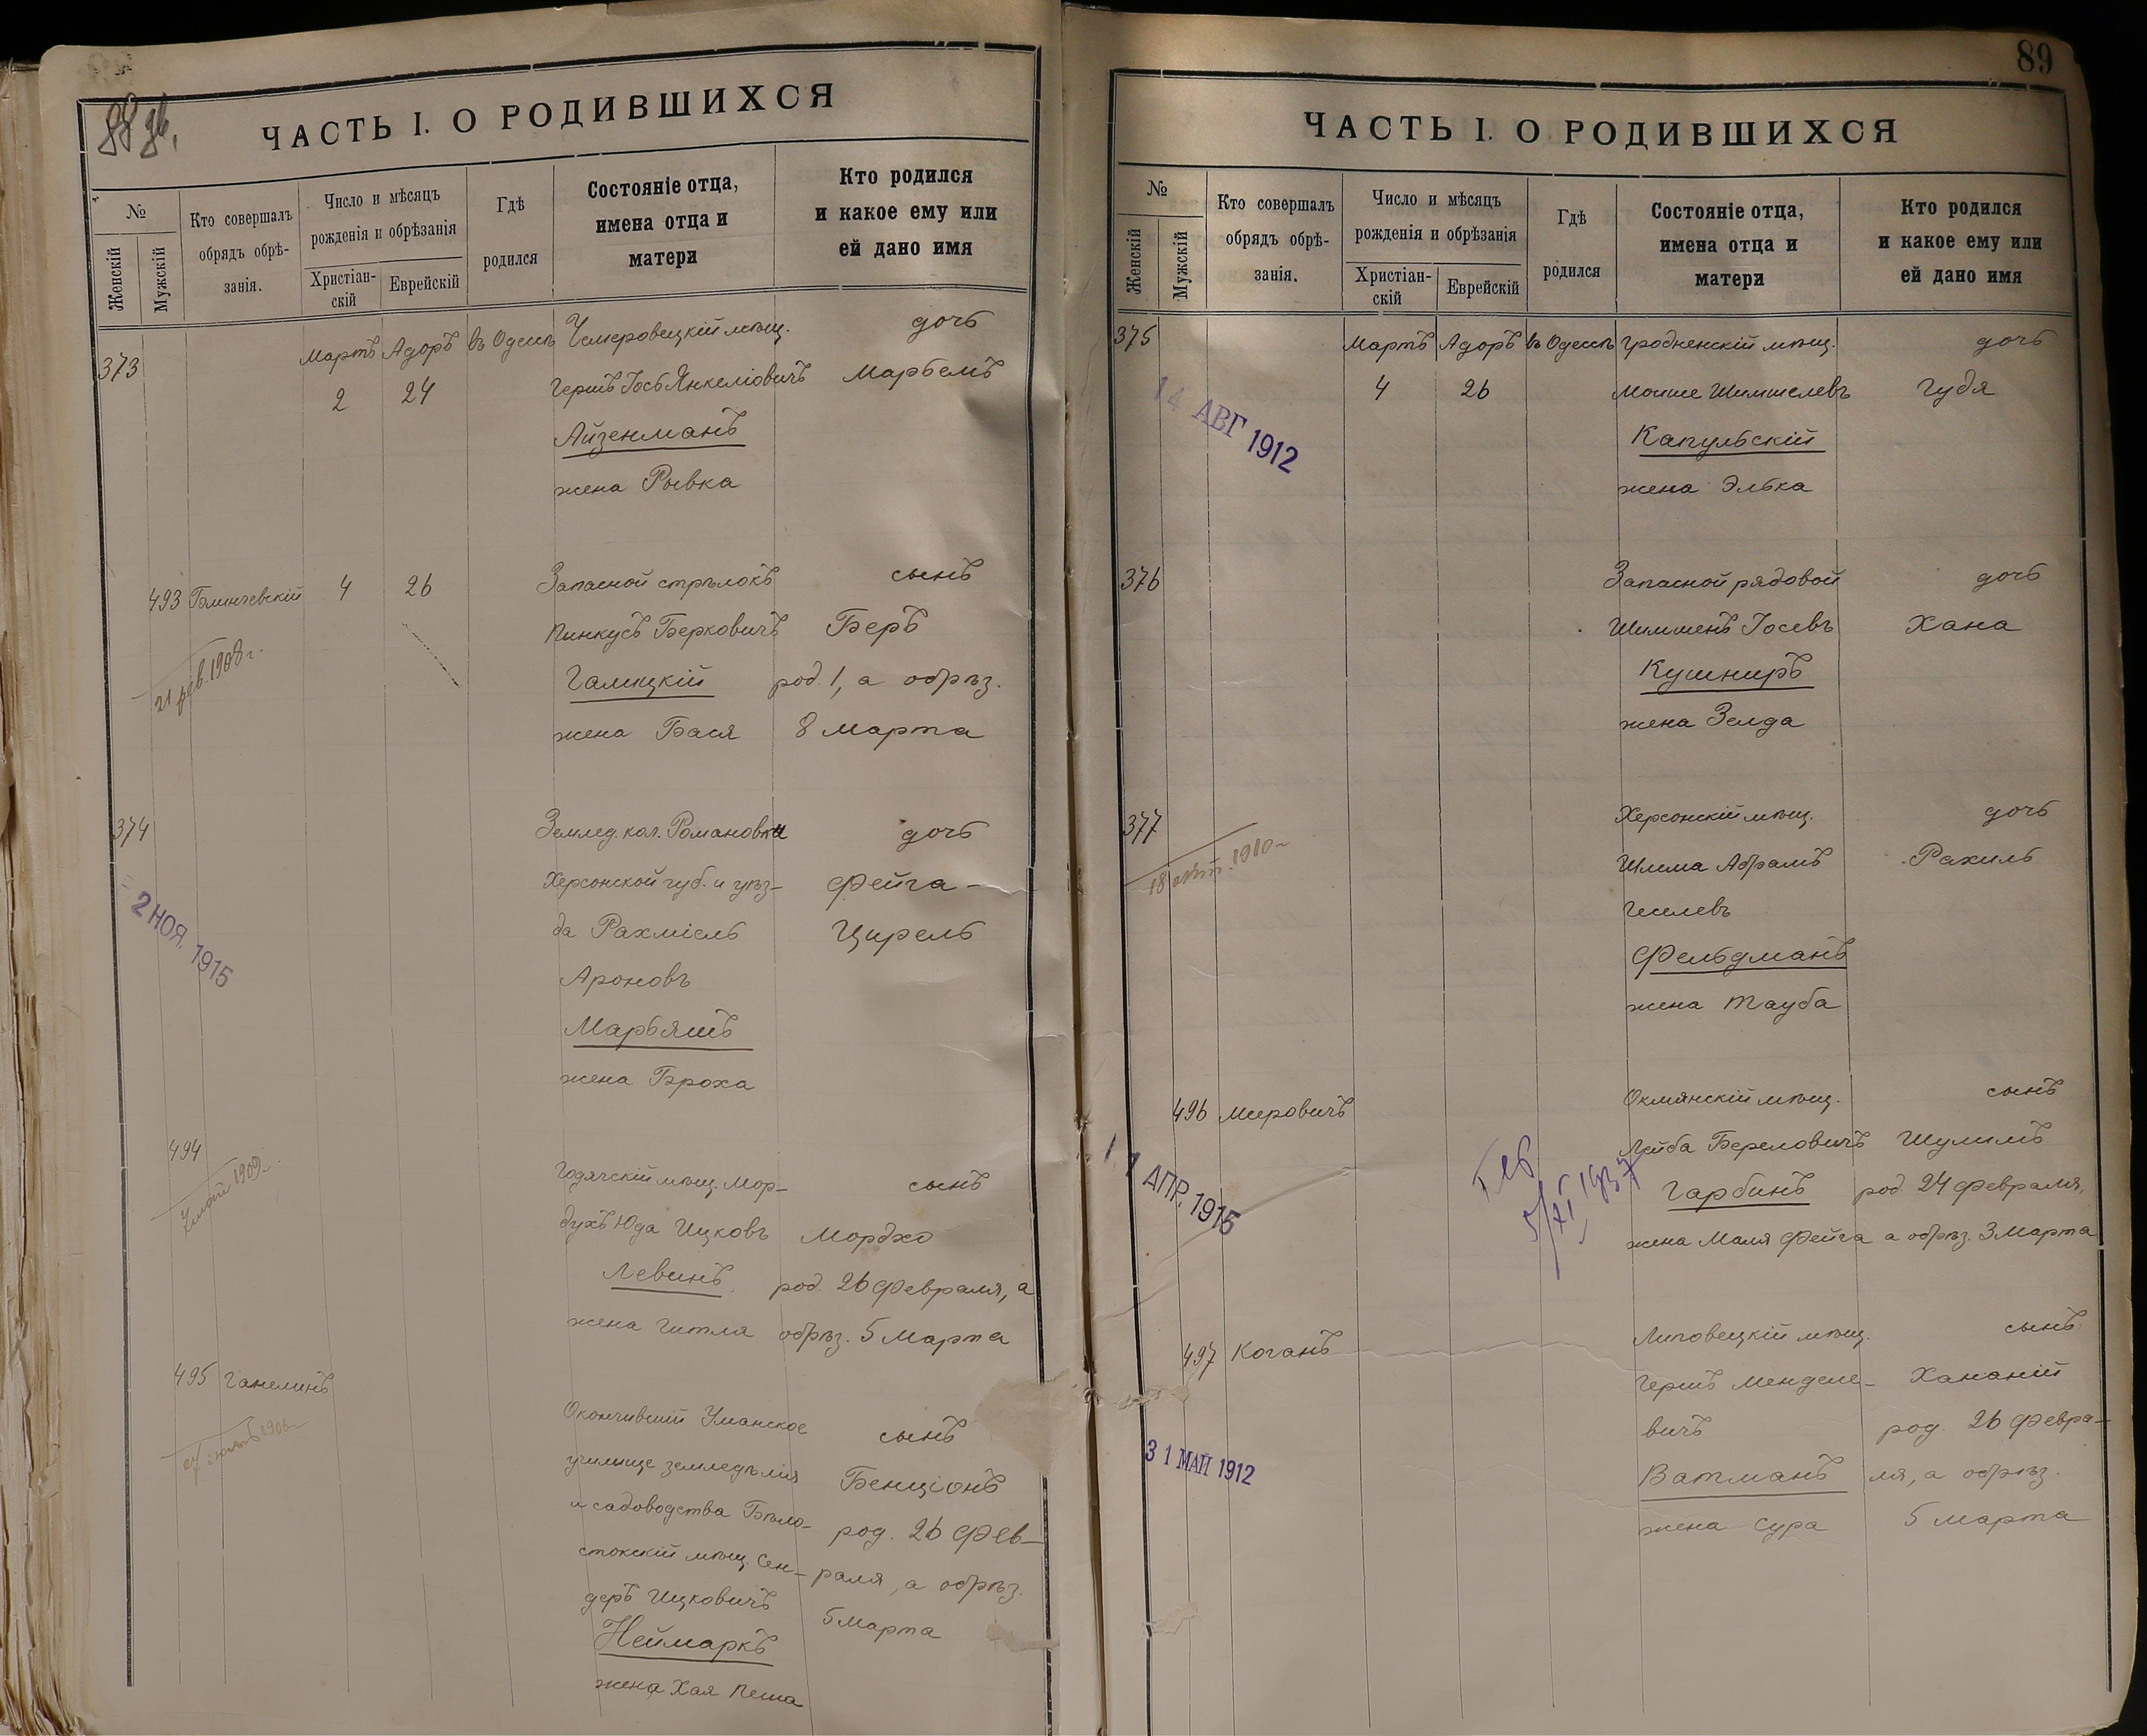 88 об.
ЧАСТЬ I. О РОДИВШИХСЯ
№
Женскій
Мужскій
Кто совершалъ
обрядъ обрѣ-
занія.
Число и мѣсяцъ
рожденія и обрѣзанія
Христіан-
скій
Еврейскій
Гдѣ
родился
Состояніе отца,
имена отца и
матери
Кто родился
и какое ему или
ей дано имя
373
Мартъ Адоръ въ Одессѣ Чемеровецкій мѣщ. дочь
2 24 Гершъ Іось Янкеліовичъ Марьемъ
Айзенманъ
жена Ривка
493 Блинчевскій 4 26 Запасной стрѣлокъ сынъ
Пинкусъ Берковичъ Беръ
21 фев. 1908 г. Галицкій род. 1, а обрѣз.
жена Бася 8 марта
374 Землед. кол. Романовки дочь
Херсонской губ. и уѣз- Фейга-
2 НОЯ. 1915 да Рахміель Цирель
Ароновъ
Марьяшъ
жена Броха
494
1909 г.
Годячскій мѣщ. Мор- сынъ
духъ Юда Ицковъ Мордхо
Левинъ род. 26 февраля, а
жена Гитля обрѣз. 5 марта
495 Ганелинъ
Окончившій Уманское сынъ
училище земледѣлія Бенціонъ
и садоводства Бѣло- род. 26 фев-
стокскій мѣщ. Сен- раля, а обрѣз.
деръ Ицковичъ 5 марта
Неймаркъ
жена Хая Песя
89
ЧАСТЬ I. О РОДИВШИХСЯ
№
Женскій
Мужскій
Кто совершалъ
обрядъ обрѣ-
занія.
Число и мѣсяцъ
рожденія и обрѣзанія
Христіан-
скій
Еврейскій
Гдѣ
родился
Состояніе отца,
имена отца и
матери
Кто родился
и какое ему или
ей дано имя
375 Мартъ Адоръ въ Одессѣ Гродненскій мѣщ. дочь
4 26 Мойше Шимшелевъ Гудя
14 АВГ 1912 Капульскій
жена Элька
376 Запасной рядовой дочь
Шимшенъ Іосевъ Хана
Кушниръ
жена Зелда
377 Херсонскій мѣщ. дочь
18 1910 г. Шлема Абрамъ Рахиль
Геселевъ
Фельдманъ
жена Тауба
496 Мировичъ Окмянскій мѣщ. сынъ
Лейба Береловичъ Шулимъ
1 АПР. 1915 Гарбинъ род. 24 февраля,
жена Маля Фейга а обрѣз. 3 марта
497 Коганъ Липовецкій мѣщ. сынъ
Гершъ Менделе- Хананій
вичъ род. 26 февра-
31 МАЙ 1912 Ватманъ ля, а обрѣз.
жена Сура 5 марта